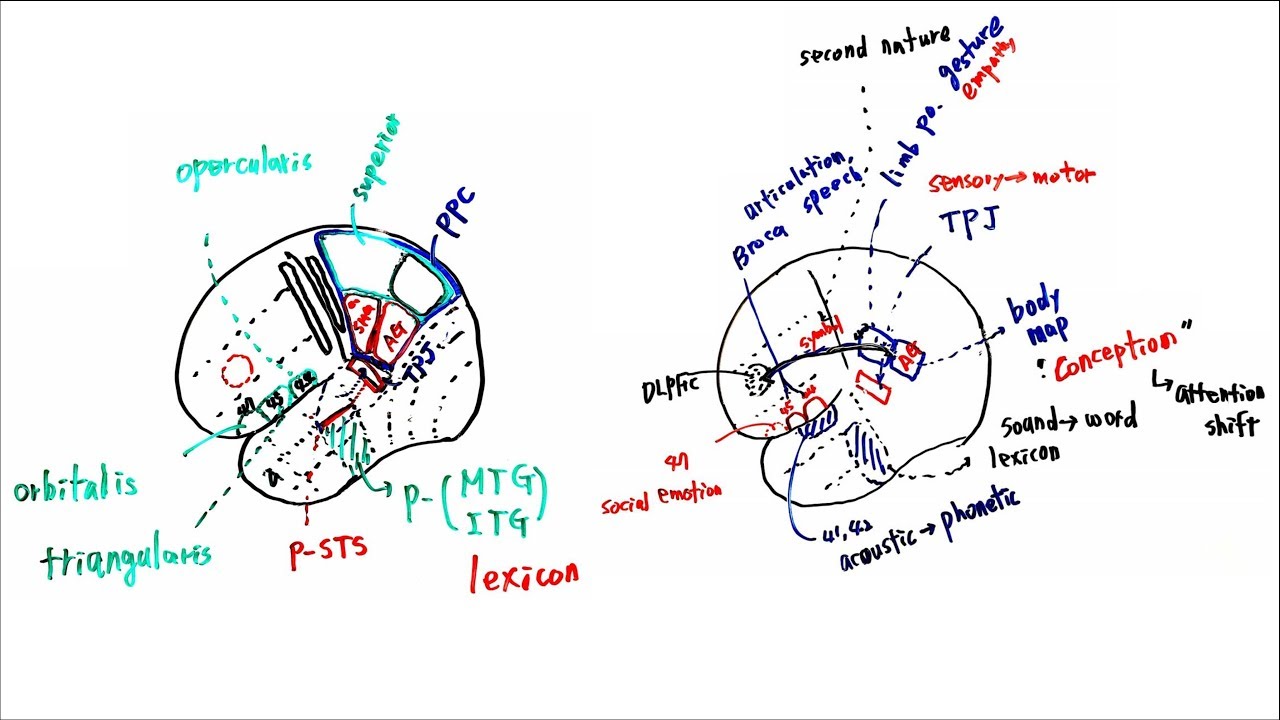 opercularis
superior
PPC
SMG
AG
TPJ
47
45
44
a
orbitalis
triangularis
P-STS
P-(MTG
ITG)
lexicon
second nature
gesture
empathy
limb po.
articulation,
speech
Broca
sensory→motor
TPJ
symbol
AG
body
map
: Conception"
attention
shift
DLPFC
45
44
sound→word
lexicon
47
social emotion
41,42
acoustic→phonetic